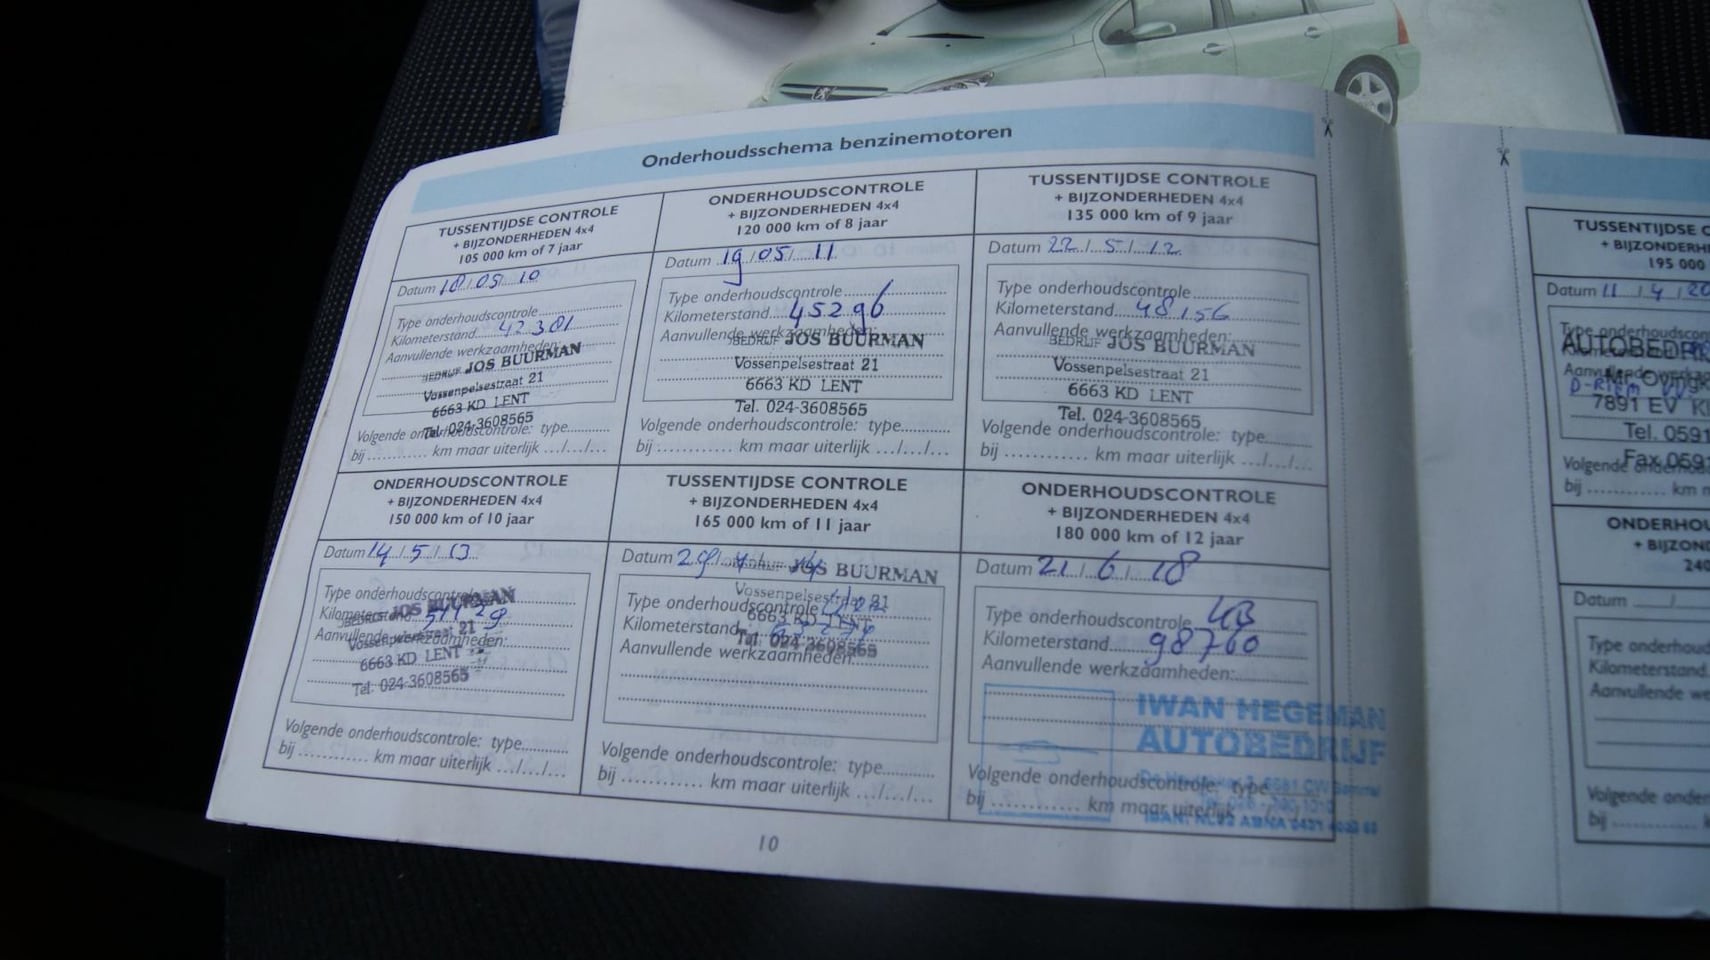 Onderhoudsschema benzinemotoren
TUSSENTIJDSE CONTROLE
+ BIJZONDERHEDEN 4x4
105 000 km of 7 jaar
Datum 18/05/10
Type onderhoudscontrole
Kilometerstand 42301
Aanvullende werkzaamheden:
BEDRIJF JOS BUURMAN
Vossenpelsestraat 21
6663 KD LENT
Tel. 024-3608565
Volgende onderhoudscontrole: type
bij ........... km maar uiterlijk .../.../...
ONDERHOUDSCONTROLE
+ BIJZONDERHEDEN 4x4
120 000 km of 8 jaar
Datum 19/05/11
Type onderhoudscontrole
Kilometerstand 45296
Aanvullende werkzaamheden:
BEDRIJF JOS BUURMAN
Vossenpelsestraat 21
6663 KD LENT
Tel. 024-3608565
Volgende onderhoudscontrole: type
bij ........... km maar uiterlijk .../.../...
TUSSENTIJDSE CONTROLE
+ BIJZONDERHEDEN 4x4
135 000 km of 9 jaar
Datum 22/5/12
Type onderhoudscontrole
Kilometerstand 48156
Aanvullende werkzaamheden:
BEDRIJF JOS BUURMAN
Vossenpelsestraat 21
6663 KD LENT
Tel. 024-3608565
Volgende onderhoudscontrole: type
bij ........... km maar uiterlijk .../.../...
ONDERHOUDSCONTROLE
+ BIJZONDERHEDEN 4x4
150 000 km of 10 jaar
Datum 14/5/13
Type onderhoudscontrole
Kilometerstand
Aanvullende werkzaamheden:
JOS BUURMAN
Vossenpelsestraat 21
6663 KD LENT
Tel. 024-3608565
Volgende onderhoudscontrole: type
bij ........... km maar uiterlijk .../.../...
TUSSENTIJDSE CONTROLE
+ BIJZONDERHEDEN 4x4
165 000 km of 11 jaar
Datum
BEDRIJF JOS BUURMAN
Vossenpelsestraat 21
Type onderhoudscontrole
6663 KD LENT
Kilometerstand
Tel. 024-3608565
Aanvullende werkzaamheden:
Volgende onderhoudscontrole: type
bij ........... km maar uiterlijk .../.../...
ONDERHOUDSCONTROLE
+ BIJZONDERHEDEN 4x4
180 000 km of 12 jaar
Datum 21/6/18
Type onderhoudscontrole
Kilometerstand 98760
Aanvullende werkzaamheden:
IWAN HEGEMAN
AUTOBEDRIJF
Volgende onderhoudscontrole: type
bij ........... km maar uiterlijk
10
TUSSENTIJDSE C
+ BIJZONDERH
195 000
Datum 11/4/20
Type onderhoudscon
AUTOBEDR
7891 EV K
Tel. 0591
Fax 059
Volgende
bij ........... km m
ONDERHOU
+ BIJZON
240
Datum
Type onderhoud
Kilometerstand
Aanvullende we
Volgende onder
bij